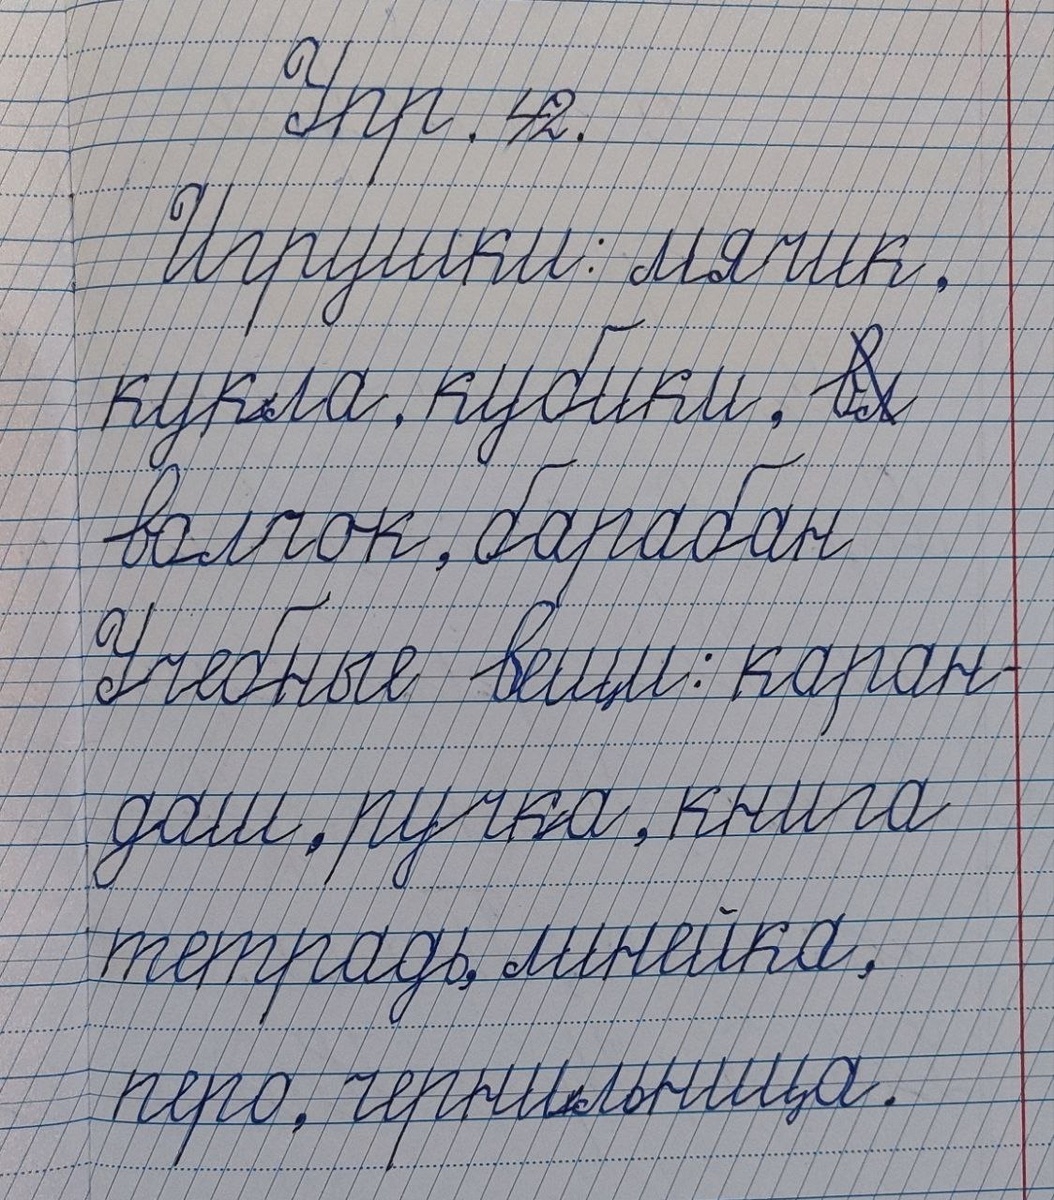 Упр. 42.
Игрушки: мячик,
кукла, кубики,
волчок, барабан
Учебные вещи: каран-
даш, ручка, книга
тетрадь, линейка,
перо, чернильница.